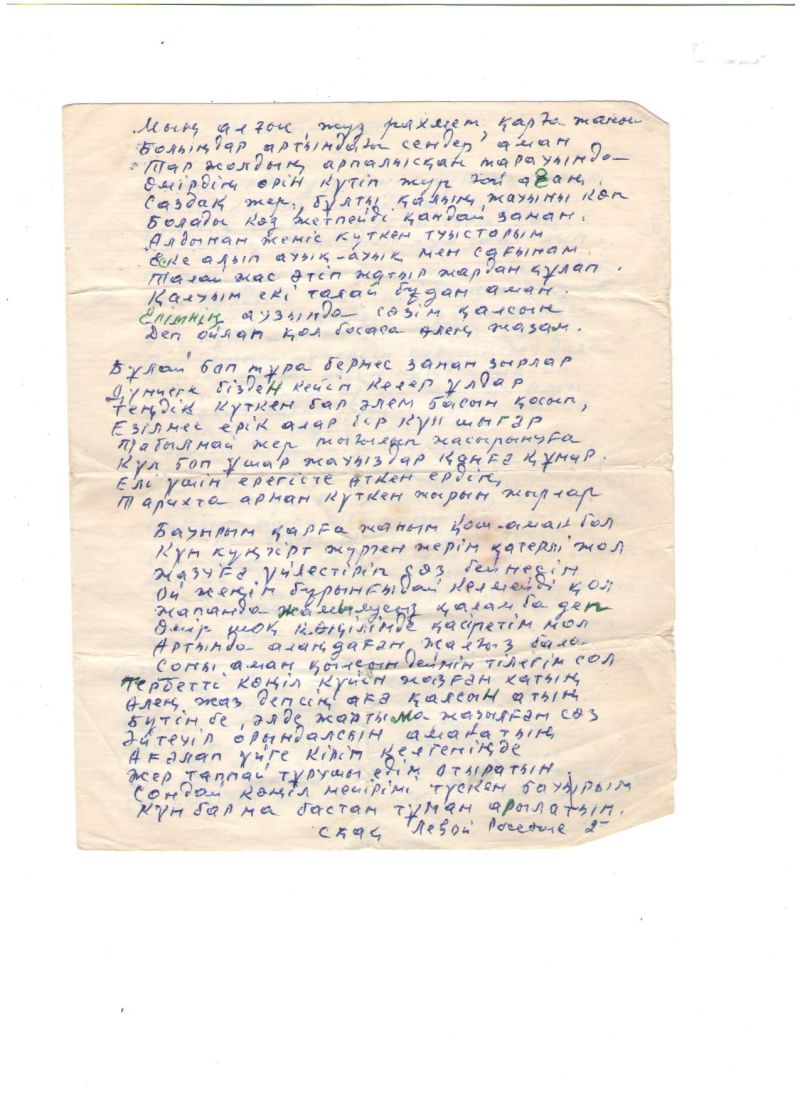 Мың алғыс, жүз рахмет, қарға жаным
Болыңдар артындағы сендер аман
Тар жолдың арпалысқан тарауында
Өмірдің өрін күтіп жүр ғой ағаң.
Саздақ жер, бұлты қалың, жауыны көп
Болады көз жетпейді қандай заман.
Алдынан жеңіс күткен туыстарым
Еске алып ауық-ауық мен сағынам.
Талай жас өтіп жатыр жардан құлап.
Қалуым екі талай бұдан аман.
Елімнің аузында сөзім қалсын
Деп ойлап қол босаса өлең жазам.
Бұлай боп тұра бермес заман зырлар
Дүниеге бізден кейін келер ұлдар
Теңдік күткен бар әлем басын қосып,
Езілмес ерік алар бір күн шығар
Табылмай жер тығылып жасырынуға
Күл боп ұшар жауыздар қаңға құмар.
Елі үшін ерегісте өткен ердің
Тарихта арман күткен жырын жырлар
Бауырым қарға жаным қош-аман бол
Күн күңгірт жүрген жерің қатерлі жол
Жазуға үйлестіріп сөз бейнесін
Ой жеңіп бұрынғыдай келмейді қол
Жапанда жамылусыз қалам ба деп
Өмір шоқ көңілімде қасіретім мол
Артында алаңдаған жалғыз бала
Соны аман қылсын деймін тілегім сол
Тербетті көңіл күйін жазған хатың
Өлең жаз депсің аға қалсын атың
Бүтін бе, әлде жарты ма жазылған сөз
Әйтеуір орындалсын аманатың
Ағалап үйге кіріп келгеніңде
Жер таппай тұрушы едім отыратын
Сондай көңіл мейірімі түскен бауырым
Күн бар ма бастан тұман арылатын.